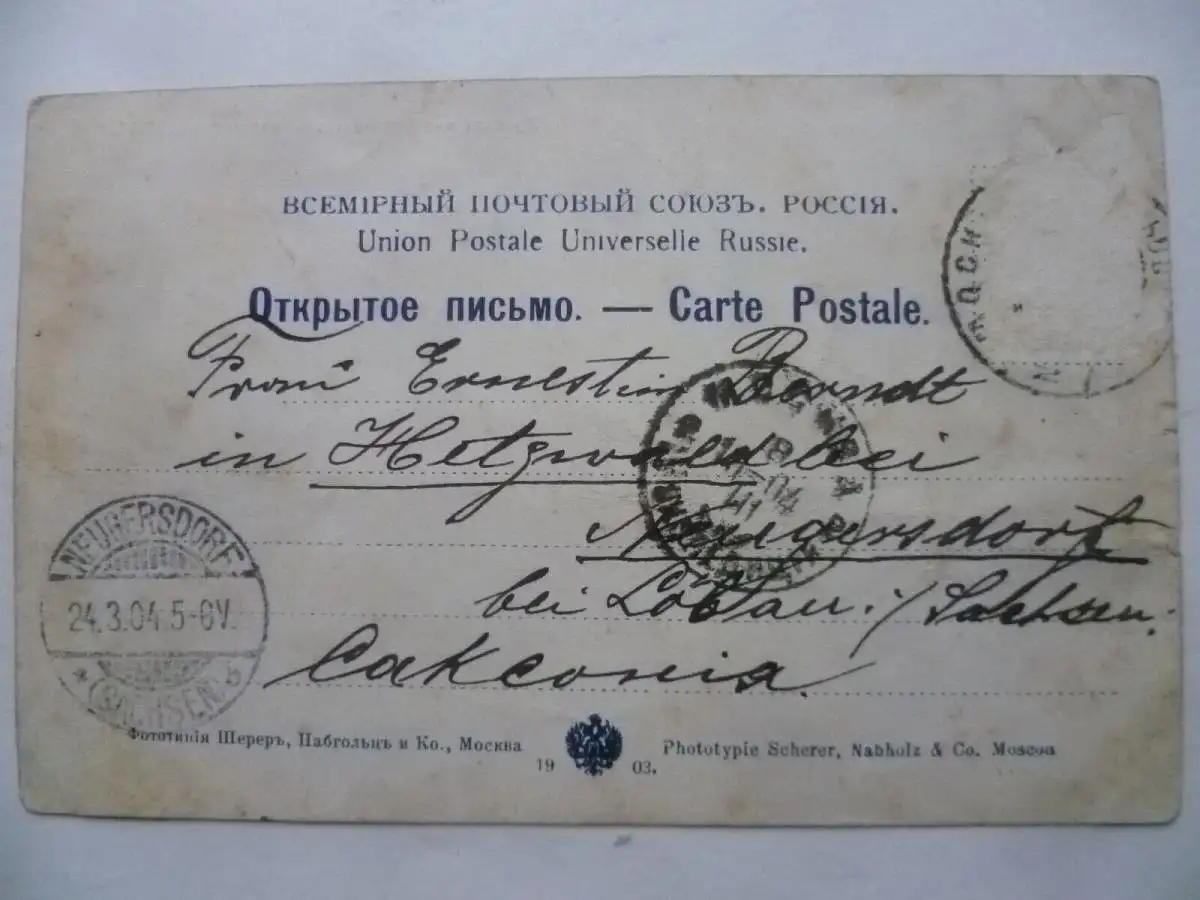 ВСЕМІРНЫЙ ПОЧТОВЫЙ СОЮЗЪ. РОССІЯ.
Union Postale Universelle Russie.
Открытое письмо. — Carte Postale.
Frau Ernestin Berndt
in Hetzwalde bei
Neugersdorf
bei Löbau i/Sachsen.
Саксонія.
NEUGERSDORF
24.3.04.5-6V.
* (SACHSEN.) b
Фототипія Шереръ, Набгольцъ и Ко., Москва
1903.
Phototypie Scherer, Nabholz & Co. Moscou